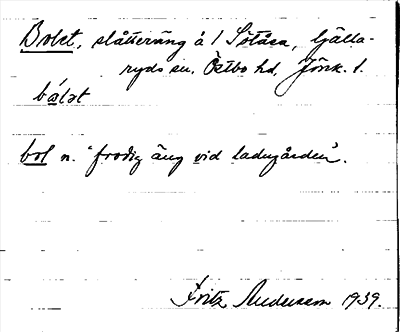 Bolet, slåtteräng å 1 Sötåsa, Gjälla-
ryds sn, Östbo hd, Jönk. l.
bólət
bol n. "frodig äng vid ladugården".
Fritz Andersson 1939.